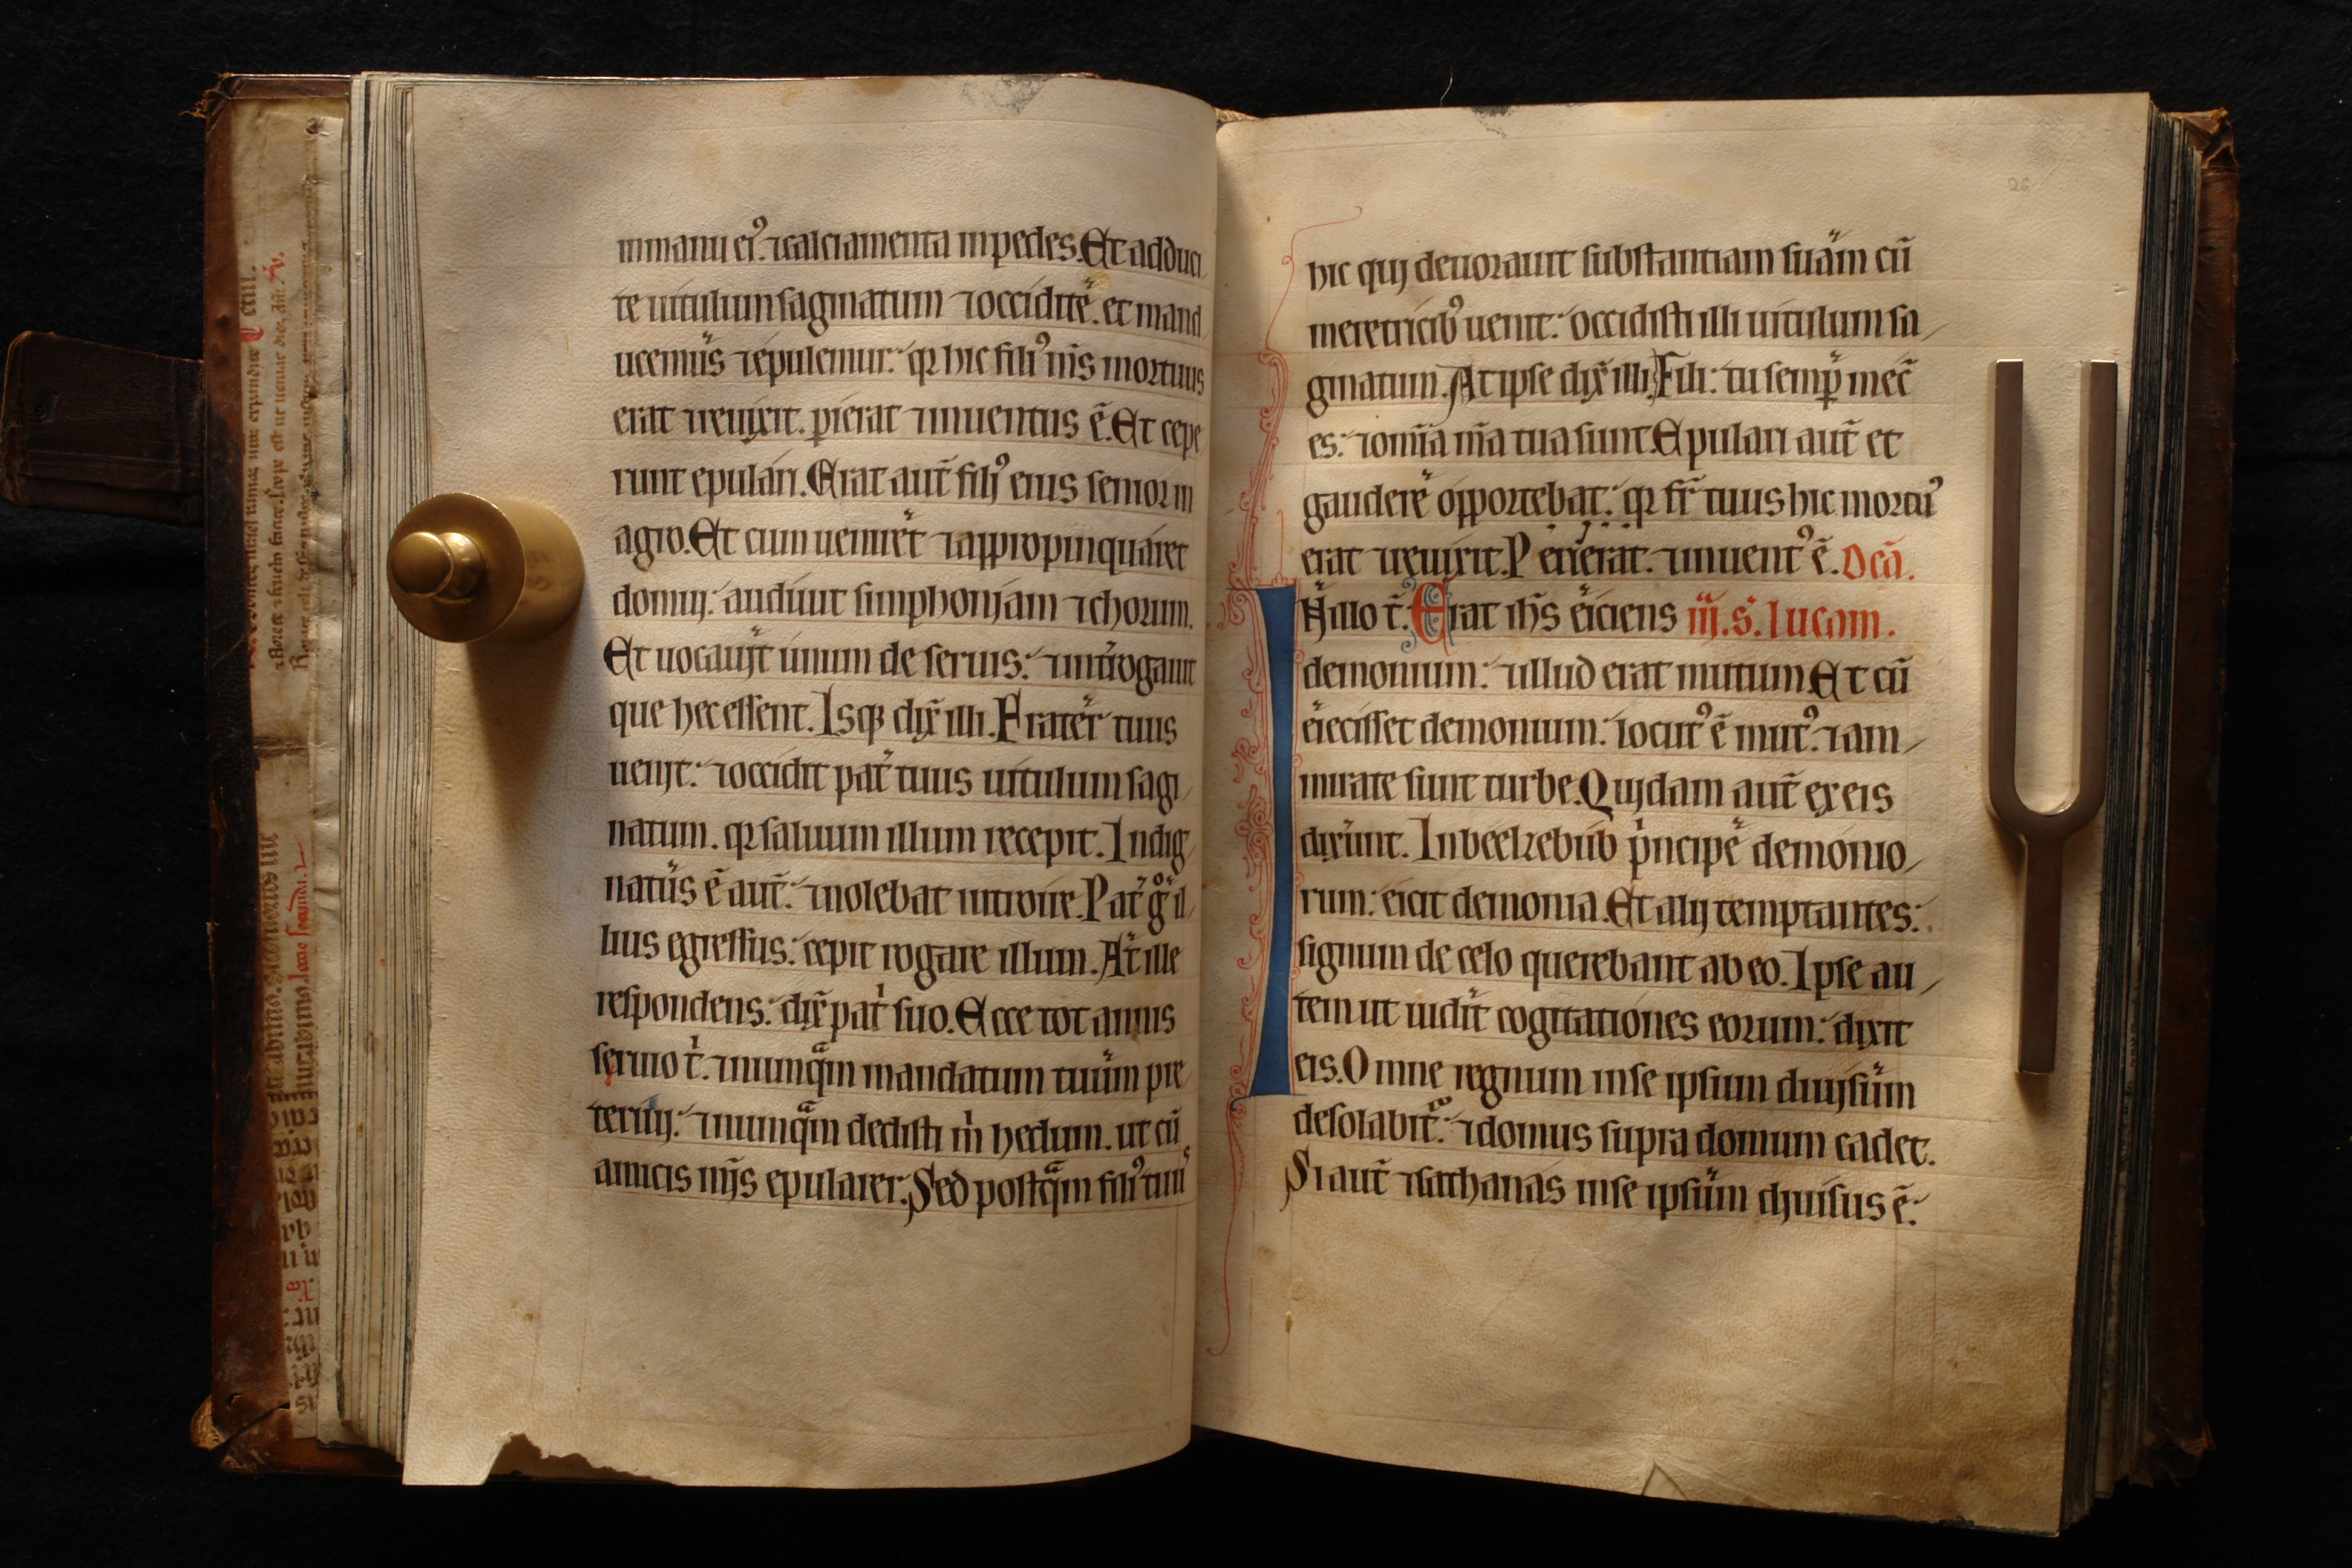 in manu ei᾿. ⁊ calciamenta in pedes. Et adduci
te uitulum saginatum ⁊ occidite. et mand
ucemus ⁊ epulemur: qr hic fili᾿ ms̄ mortuus
erat ⁊ reuixit. pierat ⁊ inuentus ē. Et cepe
runt epulari. Erat aut̄ fili᾿ eius senior in
agro. Et cum ueniret ⁊ appropinquaret
domui: audiuit simphoniam ⁊ chorum.
Et uocauit unum de seruis: ⁊ int̄rogauit
que hec essent. Isqꝫ dix̄ illi. Frater tuus
uenit: ⁊ occidit pat̄ tuus uitulum sagi
natum. qr saluum illum recepit. Indig
natus ē aut̄: ⁊ nolebat introire. Pat̄ gͦ il
lius egressus: cepit rogare illum. At ille
respondens: dix̄ pat̍ suo. Ecce tot annis
seruio t̍. ⁊ nunqᵃm mandatum tuum pre
teriui: ⁊ nunqᵃm dedisti m̍ hedum. ut cū
amicis mijs epularer. Sed postqᵃm fili᾿ tuu᾿
hic qui deuorauit substantiam suam cū
meretricib᾿ uenit: occidisti illi uitulum sa
ginatum. At ipse dix̄ illi. Fili: tu semp̄ mec̄
es: ⁊ om̄ia m̄a tua sunt. Epulari aut̄ et
gaudere opportebat: qr fr̄ tuus hic mortu᾿
erat ⁊ reuixit. Perierat ⁊ inuent᾿ ē. Dcā.
N illo t̄. Erat ih̄s eiciens iij. s̄. lucam.
demonium: ⁊ illud erat mutum. Et cū
eiecisset demonium: locut᾿ ē mut᾿. ⁊ am
mirate sunt turbe. Quidam aut̄ ex eis
dixerunt. In beelzebub pͥncipe demonio
rum: eicit demonia. Et alij temptantes:
signum de celo querebant ab eo. Ipse au
tem ut uidit cogitationes eorum: dixit
eis. Omne regnum in se ipsum diuisum
desolabit᷑: ⁊ domus supra domum cadet.
Si aut̄ ⁊ sathanas in se ipsum diuisus ē:
26